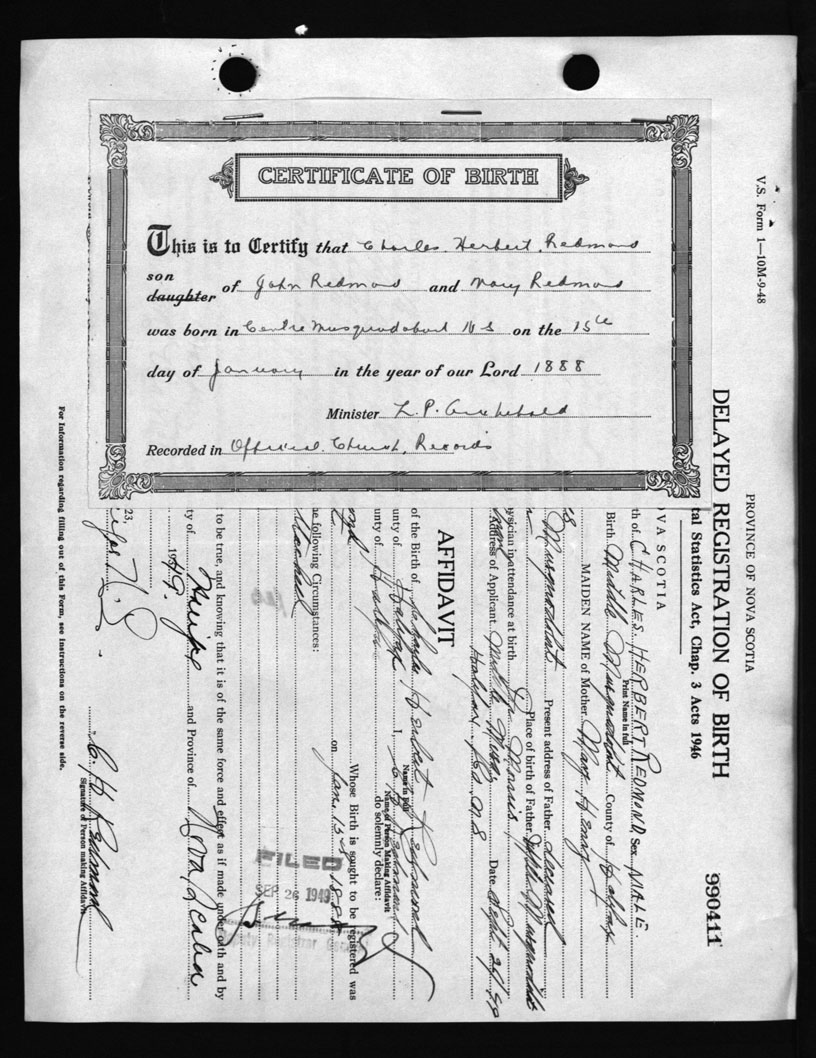 CERTIFICATE OF BIRTH
This is to Certify that Charles Herbert Redmond
son
daughter of John Redmond and Mary Redmond
was born in Centre Musquodoboit N S on the 15th
day of January in the year of our Lord 1888
Minister L. P. Archibald
Recorded in Official Church Records
V.S. Form 1—10M-9-48
PROVINCE OF NOVA SCOTIA
DELAYED REGISTRATION OF BIRTH
990411
tal Statistics Act, Chap. 3 Acts 1946
OVA SCOTIA
th of CHARLES HERBERT REDMOND Sex MALE.
Print Name in full
Birth Middle Musquodoboit County of Halifax
MAIDEN NAME of Mother Mary Henry
88
Musquodoboit Present address of Father deceased
Place of birth of Father
ysician in attendance at birth Dr Morris
Address of Applicant Middle Musq Date Sept 29/49
Halifax Co. N.S
AFFIDAVIT
of the Birth of Charles Herbert Redmond
Name in full
unty of Halifax I, C H Redmond
Name of Person Making Affidavit
unty of Halifax do solemnly declare:
Whose Birth is sought to be registered was
on Jan. 15 1888
e following Circumstances:
FILED
SEP 26 1949
Deputy Registrar General
to be true, and knowing that it is of the same force and effect as if made under oath and by
ty of and Province of Nova Scotia
1949.
23.
C. H. Redmond
Signature of Person making Affidavit
For Information regarding filling out of this Form, see Instructions on the reverse side.